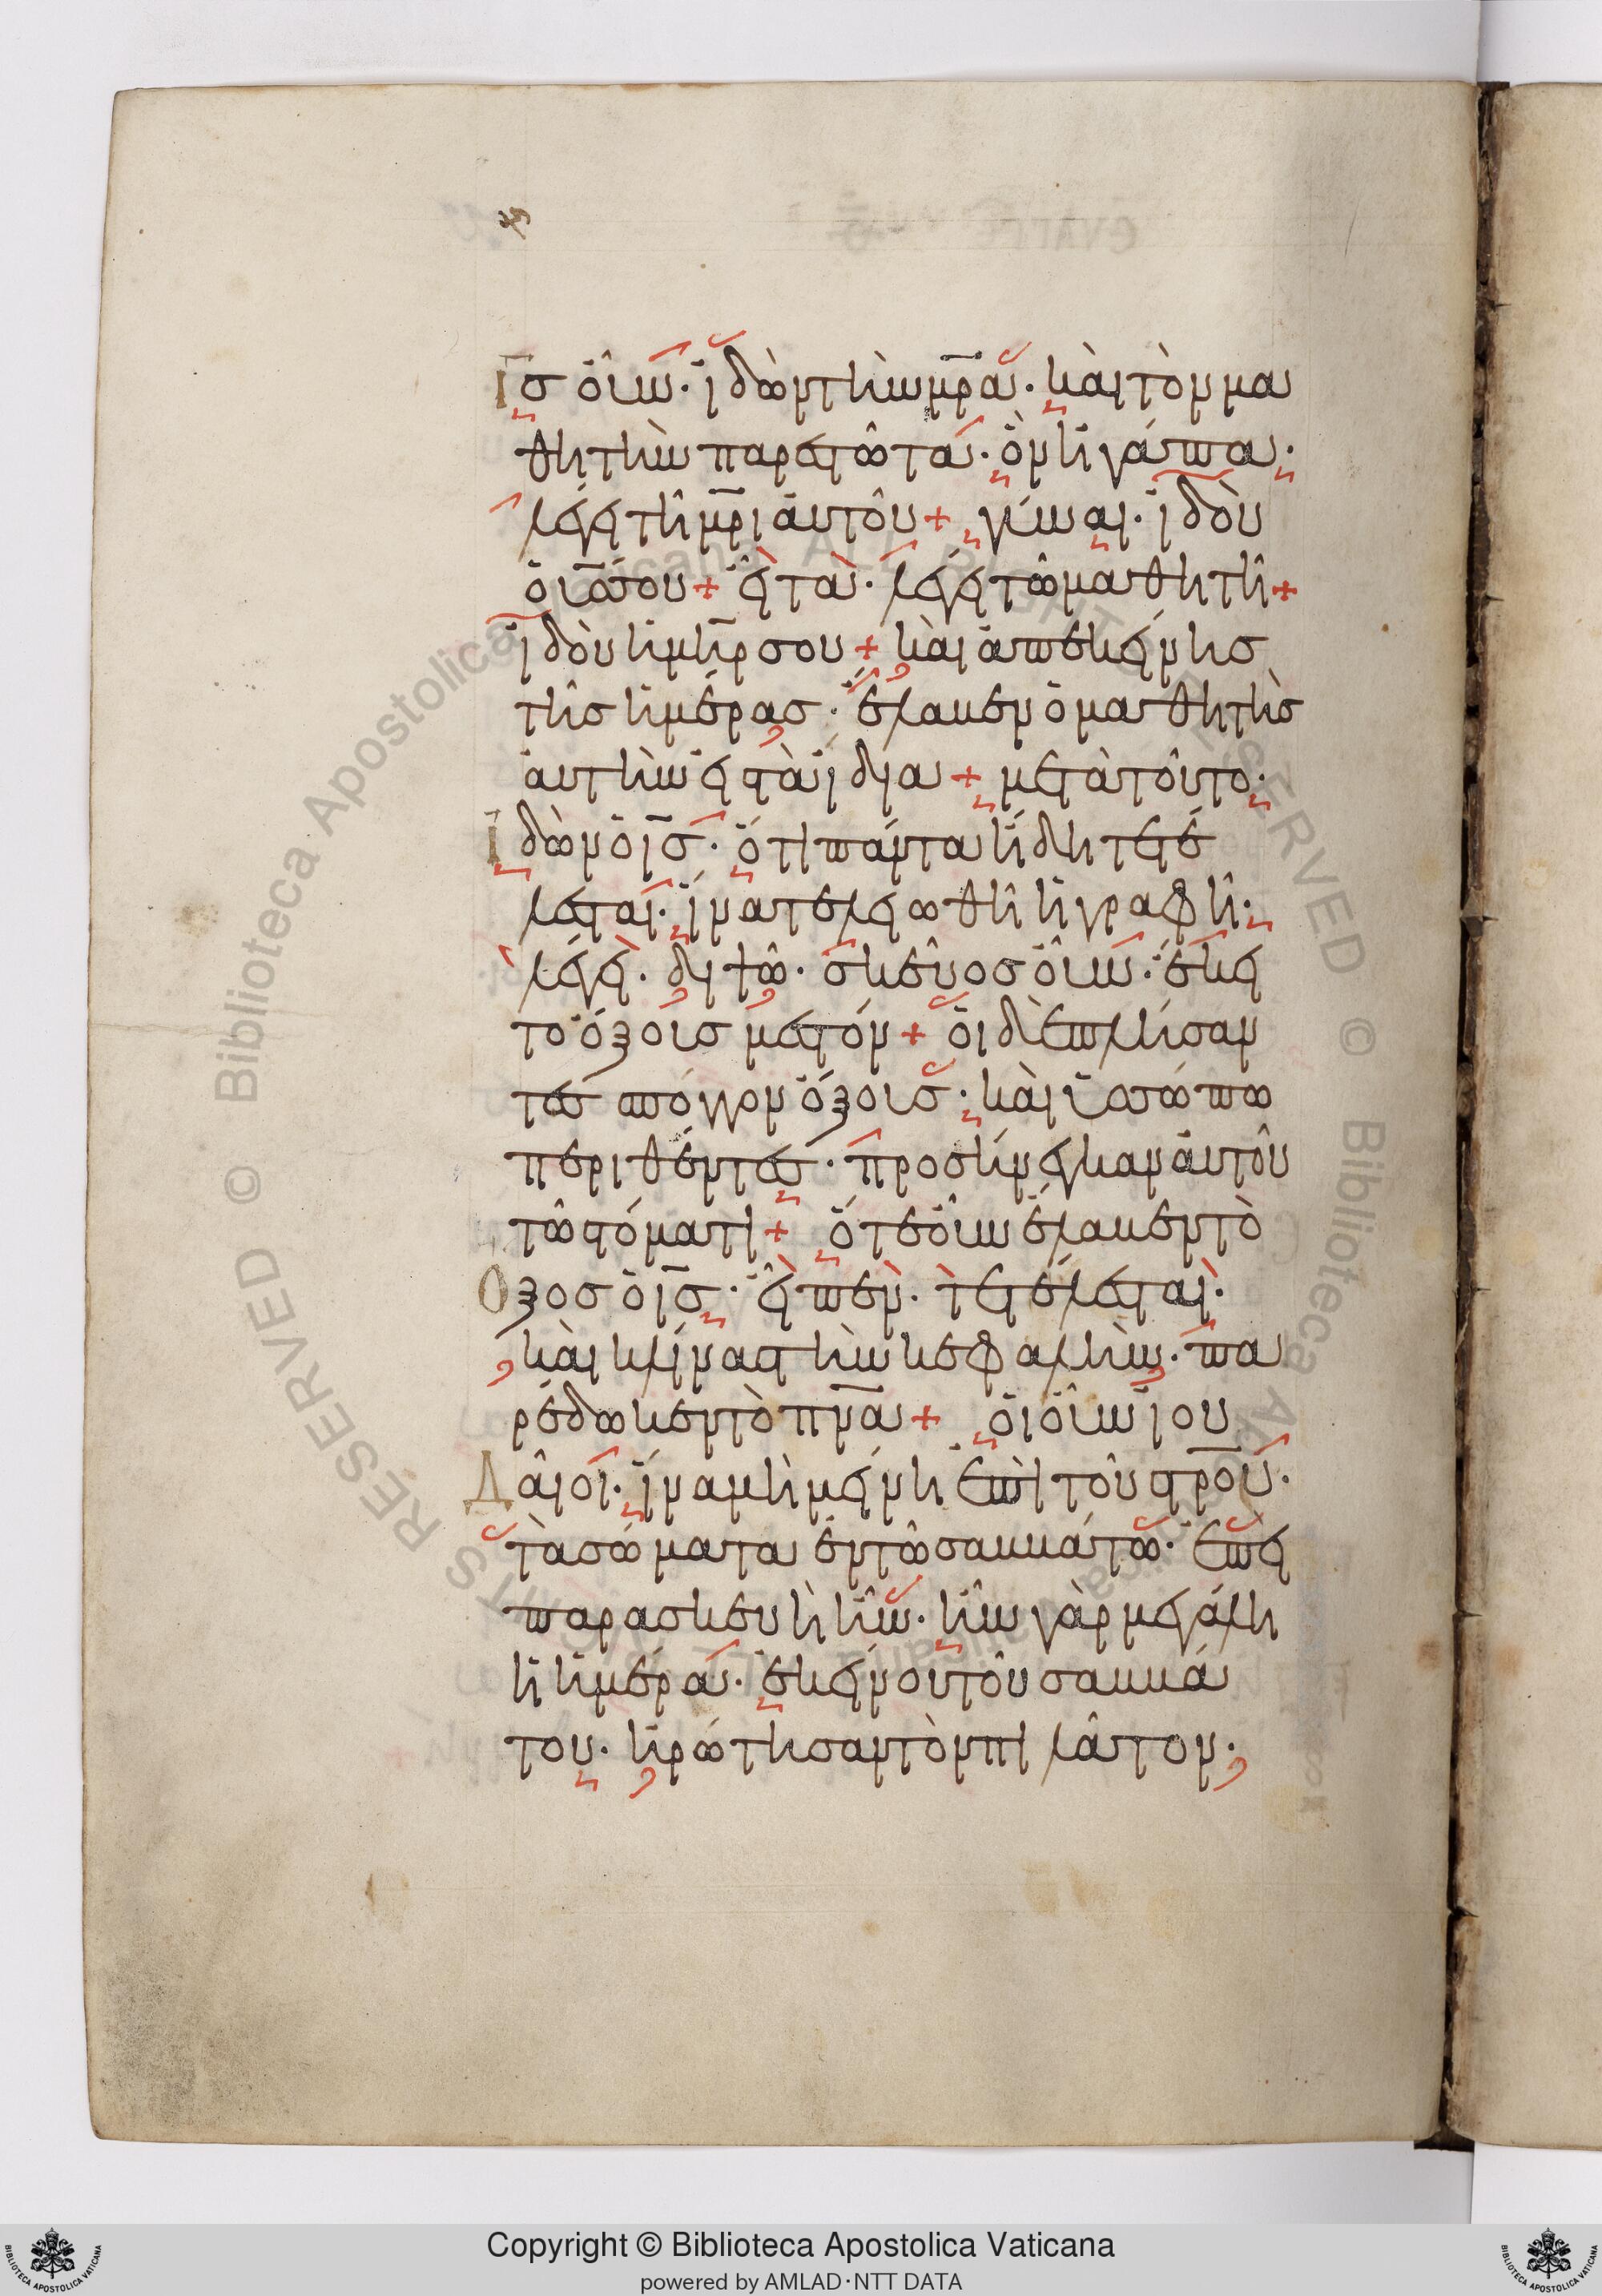 ΙϹ οὖν· ἰδὼν τὴν μρ̅α· καὶ τὸν μα
θητὴν παρεστῶτα· ὃν ἠγάπα·
λέγει τῆ μρ̅ι αὐτοῦ + γύναι· ἰδοὺ
ὁ υἱός σου + εἶτα· λέγει τῶ μαθητῆ +
ἰδοὺ ἡ μη̅ρ σου + καὶ ἀπ' ἐκείνης
τῆς ἡμέρας· ἔλαβεν ὁ μαθητὴς
αὐτὴν εἰς τὰ ἴδια + μετὰ τοῦτο·
Ἰδὼν ὁ ι̅ς· ὅτι πάντα ἤδη τετέ
λεσται· ἵνα τελειωθῆ ἡ γραφή·
λέγει· διψῶ· σκεῦος οὖν· ἔκει
το ὄξους μεστόν + οἱ δὲ πλήσαν
τες σπόγγον ὄξους· καὶ ὑσσώπω
περιθέντες· προσήνεγκαν αὐτοῦ
τῶ στόματι + ὅτε οὖν ἔλαβεν τὸ
Ὄξος ὁ ι̅ς· εἶπεν· τετέλεσται·
καὶ κλίνας τὴν κεφαλὴν· πα
ρέδωκεν τὸ πν̅α + οἱ οὖν ἰου
Δαῖοι· ἵνα μὴ μείνη ἐπὶ τοῦ στρ̅ου·
τὰ σώματα ἐν τῶ σαββάτω· ἐπεὶ
παρασκευὴ ἦν· ἦν γὰρ μεγάλη
ἡ ἡμέρα· ἐκείνου τοῦ σαββά
του· ἠρώτησαν τὸν πιλᾶτον·
Copyright © Biblioteca Apostolica Vaticana
powered by AMLAD·NTT DATA